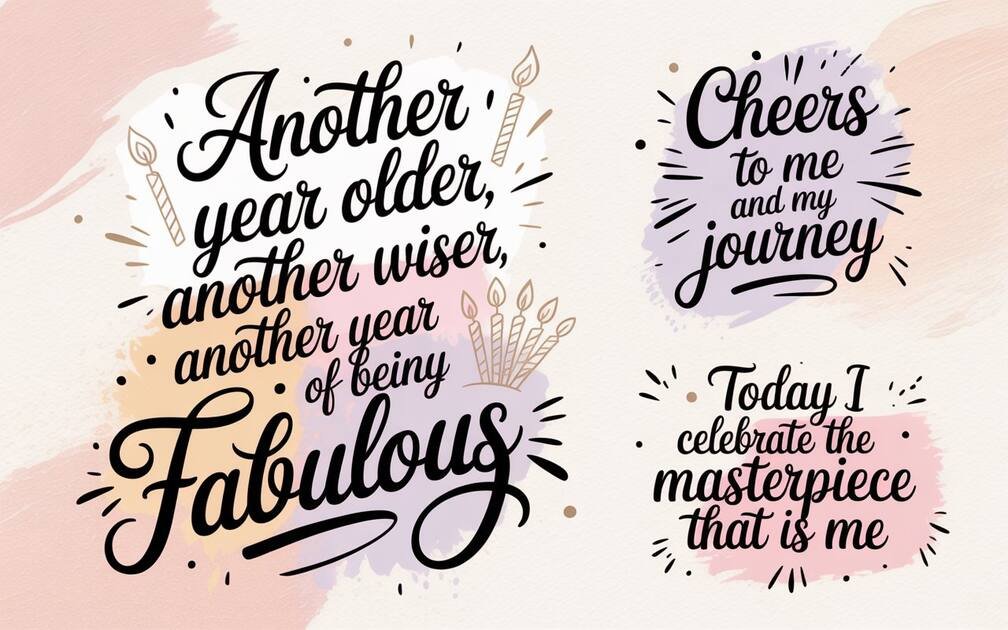 Another
year older,
another wiser,
another year
of being
Fabulous
Cheers
to me
and my
journey
Today I
celebrate the
masterpiece
that is me